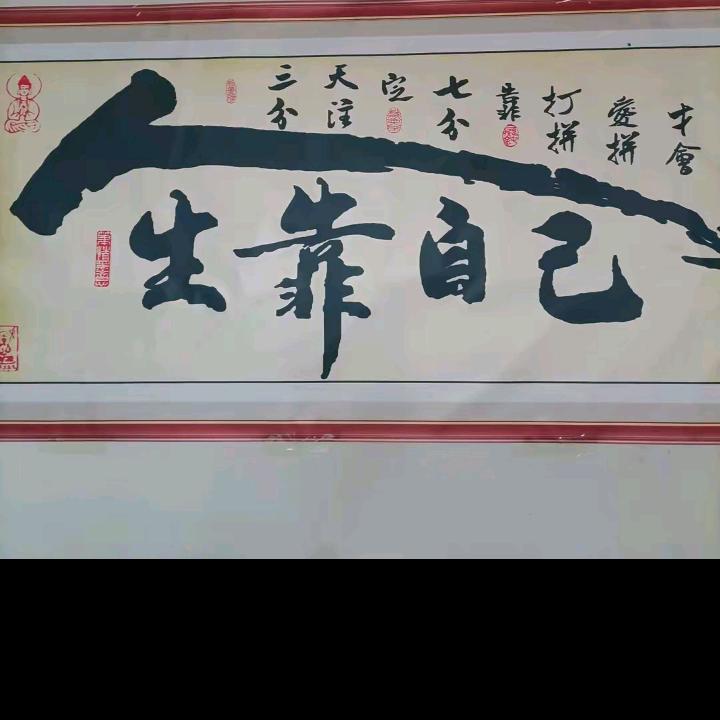 三分天注定七分靠打拼愛拼才會
人生靠自己